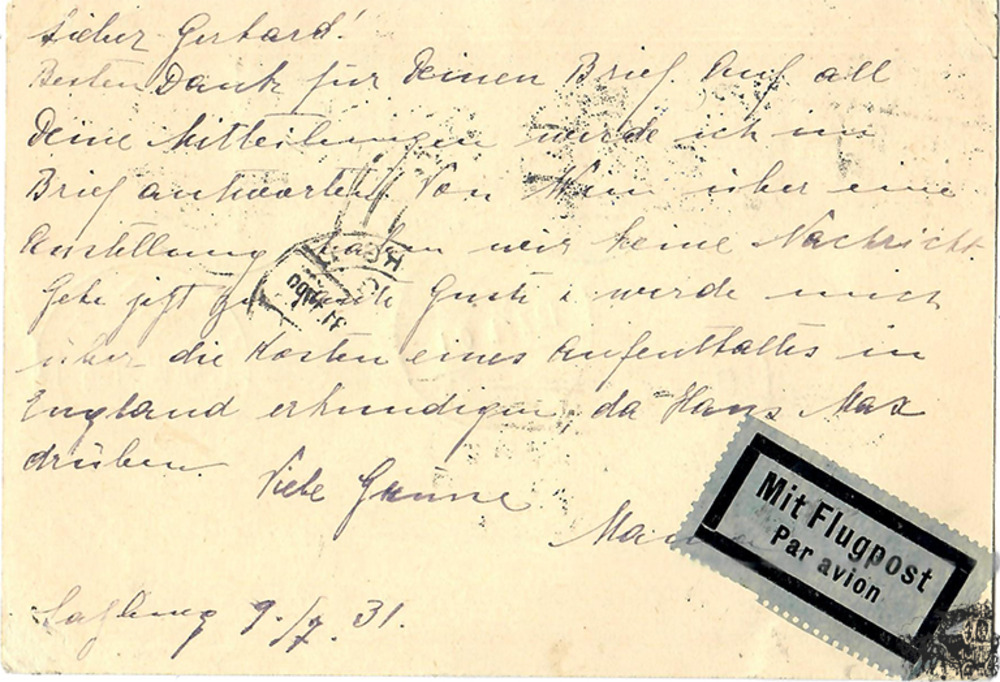 Lieber Gerhard!
Besten Dank für Deinen Brief. Auf all
Deine Mitteilungen werde ich im
Brief antworten. Von über eine
Anstellung haben wir keine Nachricht.
Gehe jetzt zu Gusti & werde mich
über die Kosten eines Aufenthaltes in
England erkundigen, da Hans Max
drüben.
Viele Grüsse
Mama
Salzburg 9./7. 31.
Mit Flugpost
Par avion